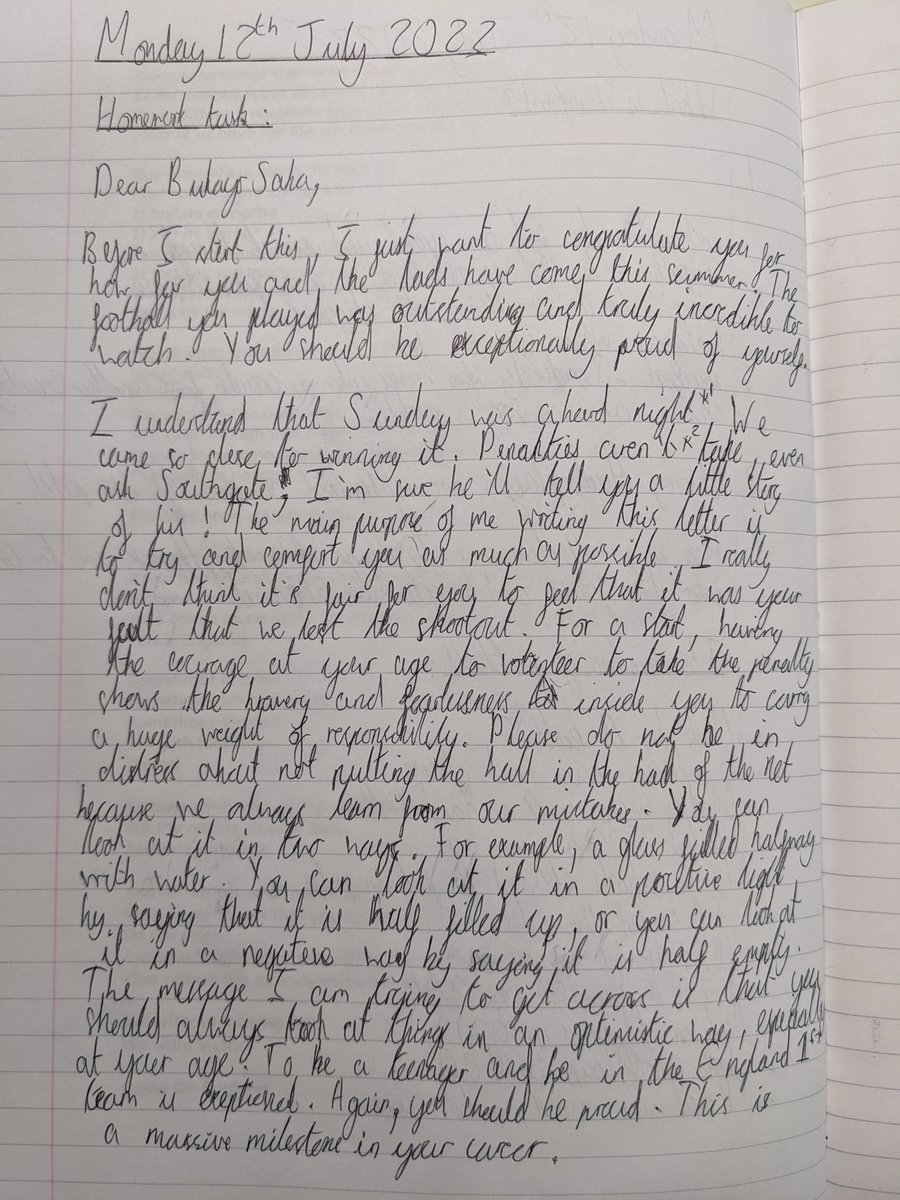 Monday 12th July 2022
Homework task:
Dear Bukayo Saka,
Before I start this, I just want to congratulate you for
how far you and the lads have come this summer. The
football you played was outstanding and truly incredible to
watch. You should be exceptionally proud of yourself.
I understand that Sunday was a hard night *1 We
came so close to winning it. Penalties aren't *2 take, even
ask Southgate, I'm sure he'll tell you a little story
of his! The main purpose of me writing this letter is
to try and comfort you as much as possible. I really
don't think it's fair for you to feel that it was your
fault that we lost the shootout. For a start, having
the courage at your age to volenteer to take the penalty
shows the bravery and fearlessness inside you to carry
a huge weight of responsibility. Please do not be in
distress about not putting the ball in the back of the net
because we always learn from our mistakes. You can
look at it in two ways. For example, a glass filled halfway
with water. You can look at it in a positive light
by saying that it is half filled up, or you can look at
it in a negative way by saying it is half empty.
The message I am trying to get across is that you
should always look at things in an optimistic way, especially
at your age. To be a teenager and be in the England 1st
team is exeptional. Again, you should be proud. This is
a massive milestone in your career.